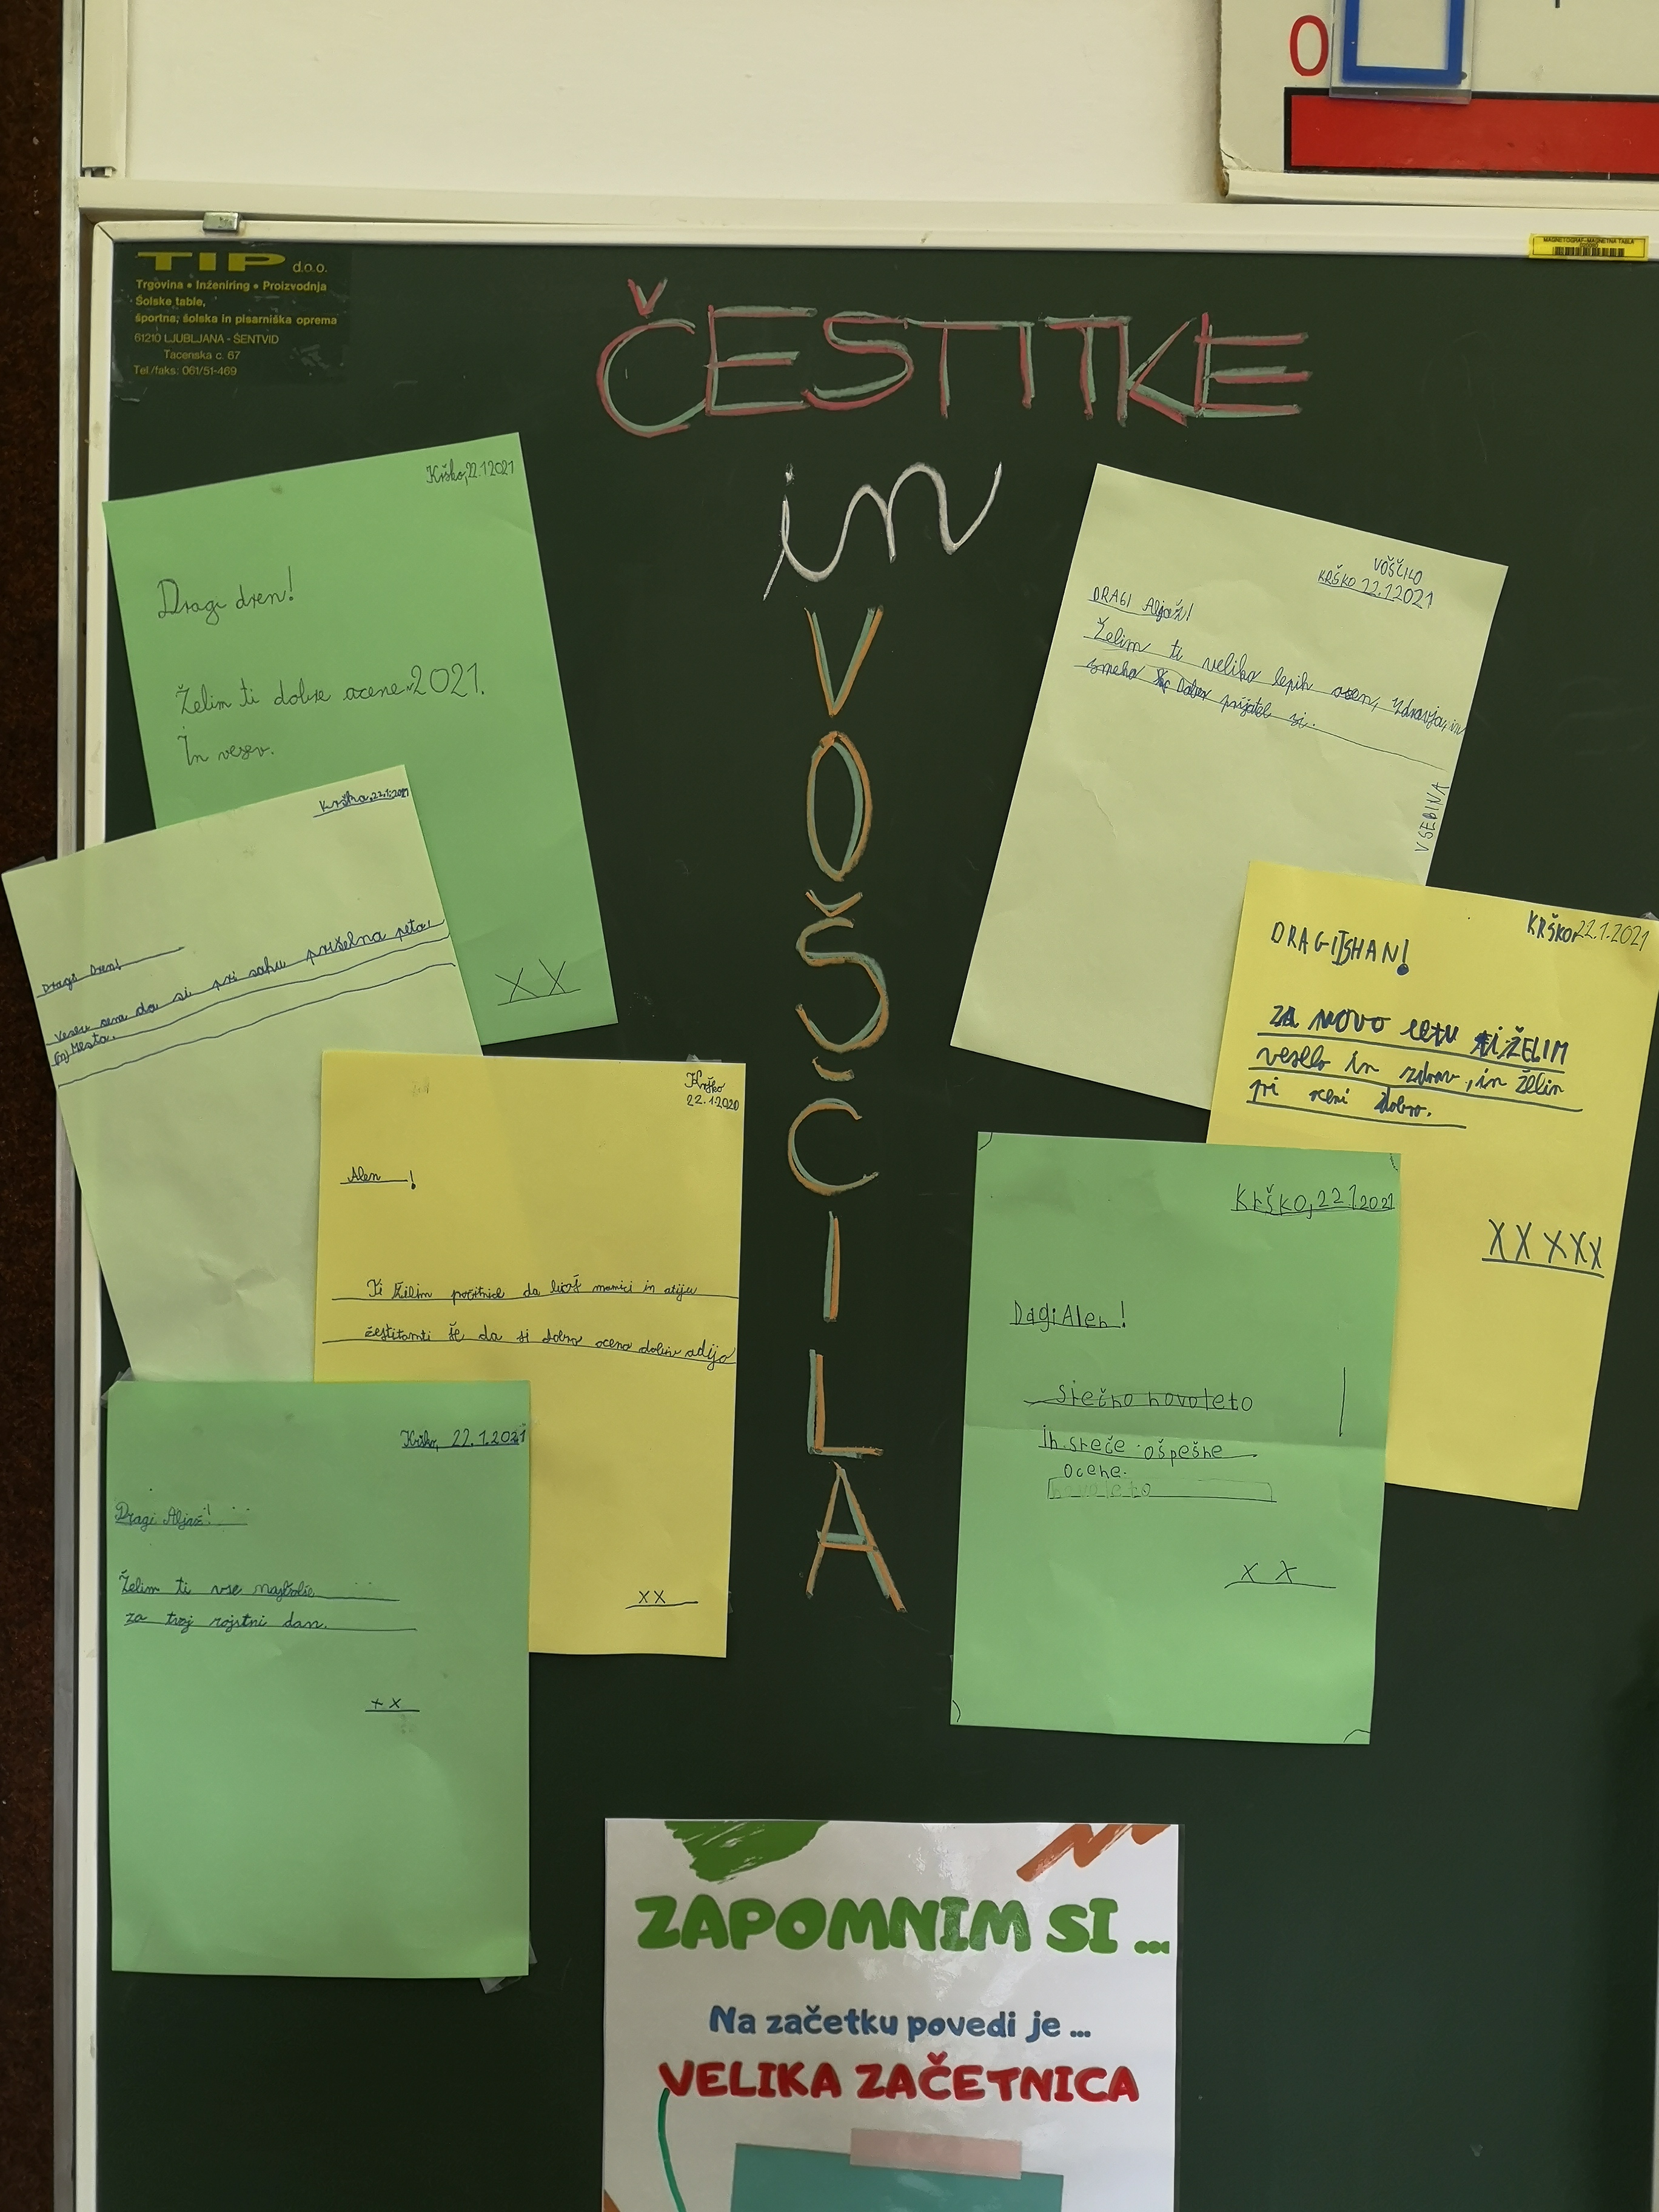 0
MAGNETOGRAF-MAGNETNA TABLA
TIP d.o.o.
Trgovina • Inženiring • Proizvodnja
Šolske table,
športna, šolska in pisarniška oprema
61210 LJUBLJANA - ŠENTVID
Tacenska c. 67
Tel./faks: 061/51-469
ČESTITKE
in
VOŠČILA
Krško, 22.1.2021
Dragi dren!
Želim ti dobre acene 2021.
In vesev.
XX
22.1.2021
Dragi Dren!
da si pri sahu
Mesta.
Krško
22.1.2020
Alen!
Ti da mamici in atiju
še da si dobro oceno adijo
XX
Krško, 22.1.2021
Dragi Aljaž!
Želim ti vse najbolše
za tvoj rojstni dan.
+ x
VOŠČILO
KRŠKO 22.1.2021
DRAGI Aljaž!
Želim ti veliko lepih ocen, zdravja, in
smeha Dober prijatel si.
VSEBINA
KRŠKO, 22.1.2021
DRAGI ISHAN!
ZA NOVO letu ti ŽELIM
veselo in zdrav, in želin
pri oceni dobro.
XX XXX
Krško, 22.1.2021
Dagi Alen!
srečno novo leto
in sreče ošpešne
ocene.
novo leto
X X
ZAPOMNIM SI ...
Na začetku povedi je ...
VELIKA ZAČETNICA